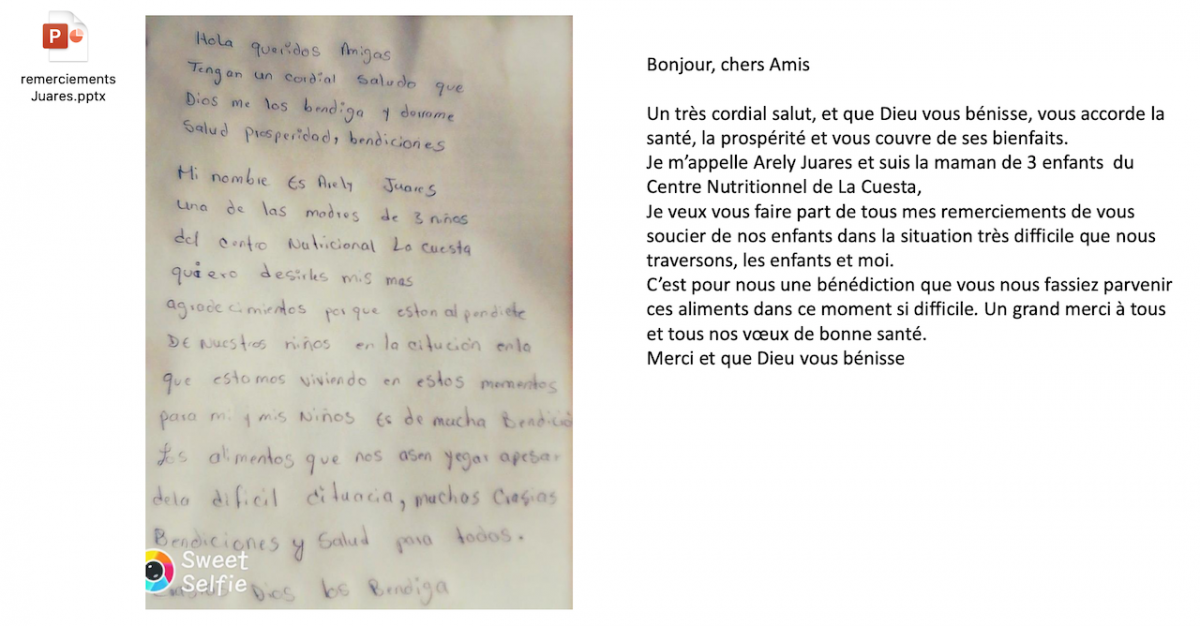 remerciements
Juares.pptx
Hola queridos Amigas
Tengan un cordial saludo que
Dios me los bendiga y derrame
Salud prosperidad, bendiciones
Mi nombre Es Arely Juares
una de las madres de 3 niños
del centro Nutricional La cuesta
quiero desirles mis mas
agradecimientos porque estan al pendiete
DE Nuestros niños en la citución enla
que estamos viviendo en estos momentos
para mi y mis Niños Es de mucha Bendició
Los alimentos que nos asen yegar apesar
dela dificil cituacia, muchas Grasias
Bendiciones y Salud para todos.
Dios los Bendiga
Sweet
Selfie
Bonjour, chers Amis
Un très cordial salut, et que Dieu vous bénisse, vous accorde la
santé, la prospérité et vous couvre de ses bienfaits.
Je m’appelle Arely Juares et suis la maman de 3 enfants du
Centre Nutritionnel de La Cuesta,
Je veux vous faire part de tous mes remerciements de vous
soucier de nos enfants dans la situation très difficile que nous
traversons, les enfants et moi.
C’est pour nous une bénédiction que vous nous fassiez parvenir
ces aliments dans ce moment si difficile. Un grand merci à tous
et tous nos vœux de bonne santé.
Merci et que Dieu vous bénisse